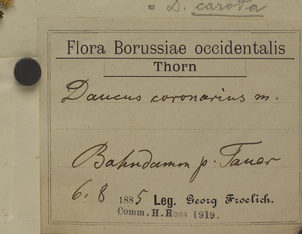 = D. carota
Flora Borussiae occidentalis
Thorn
Daucus coronarius m.
Bahndamm p. Tauer
6. 8 1885 Leg. Georg Froelich.
Comm. H. Ross 1919.